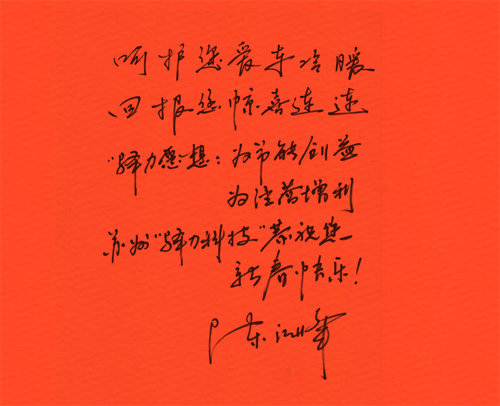 呵护您爱车冷暖
回报您惊喜连连
"驿力"想：为节能创益
为营增利
苏州"驿力科技"恭祝您
新春快乐！
陈江峰